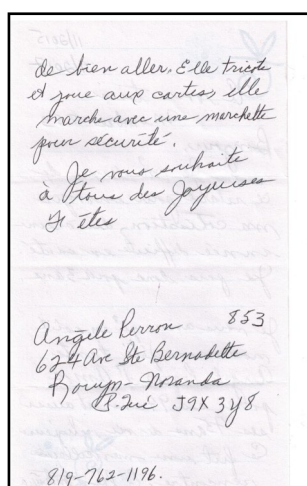 de bien aller. Elle tricote
et joue aux cartes, elle
marche avec une marchette
pour sécurité.
Je vous souhaite
à tous des Joyeuses
Fêtes
Angèle Perron 853
624 Ave Ste Bernadette
Rouyn-Noranda
P. Qué J9X 3Y8
819-762-1196.